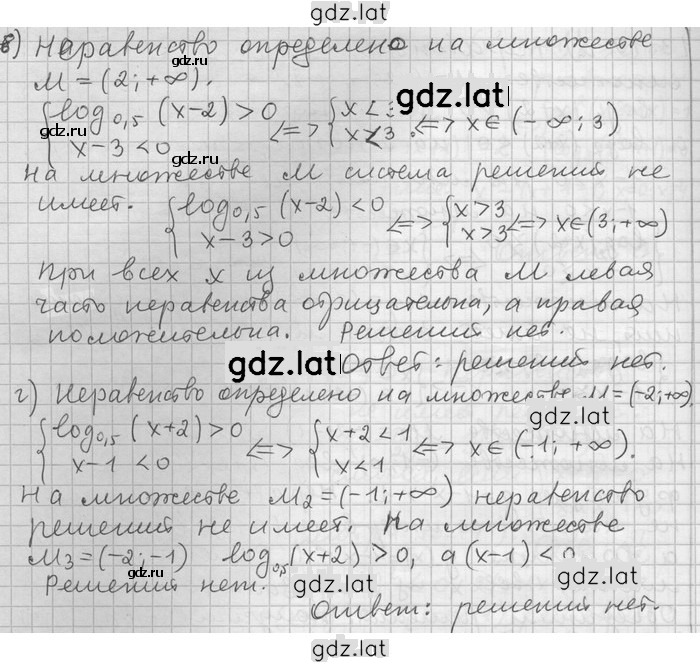 gdz.lat
в) Неравенство определено на множестве
M = (2; +∞).
{ log₀,₅ (x-2) > 0 <=> { x < 3 <=> x ∈ (-∞; 3)
x - 3 < 0 x < 3
gdz.lat
на множестве M система решений не
имеет. { log₀,₅ (x-2) < 0 <=> { x > 3 <=> x ∈ (3; +∞)
x - 3 > 0 x > 3
При всех x из множества M левая
часть неравенства отрицательна, а правая
положительна. Решений нет.
gdz.lat Ответ: решений нет.
г) Неравенство определено на множестве M = (-2; +∞)
{ log₀,₅ (x+2) > 0 <=> { x+2 < 1 <=> x ∈ (-1; +∞).
x - 1 < 0 x < 1
gdz.lat
На множестве M₂ = (-1; +∞) неравенство
решений не имеет. На множестве
M₃ = (-2; -1) log₀,₅ (x+2) > 0, а (x-1) < 0
Решений нет. gdz.lat
Ответ: решений нет.
gdz.lat